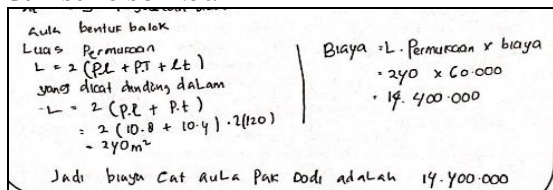 Aula bentuk balok
Luas Permukaan
L = 2 (P.l + P.T + l.t)
yang dicat dinding dalam
L = 2 (P.l + P.t)
= 2 (10.8 + 10.4) = 2(120)
= 240 m²
Biaya = L. Permukaan x biaya
= 240 x 60.000
= 14.400.000
Jadi biaya cat aula Pak Dodi adalah 14.400.000